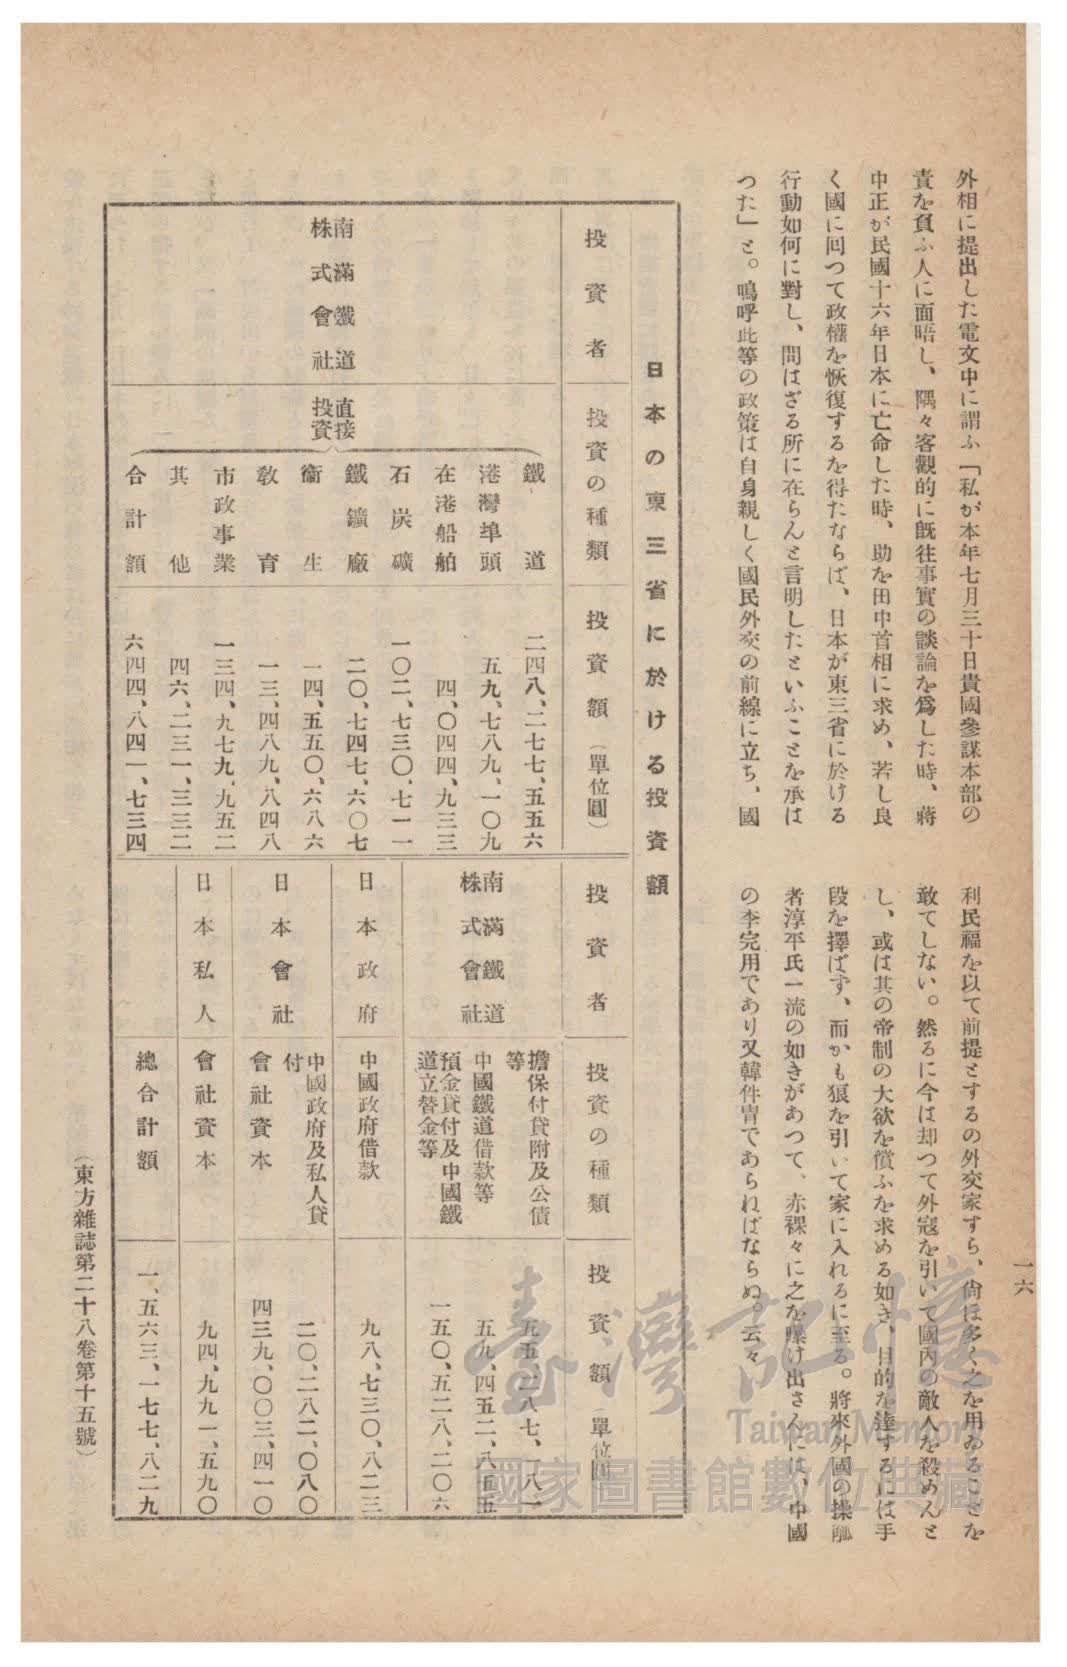 一六
外相に提出した電文中に謂ふ「私が本年七月三十日貴國參謀本部の
責を負ふ人に面晤し、隅々客觀的に既往事實の談論を爲した時、蔣
中正が民國十六年日本に亡命した時、助を田中首相に求め、若し良
く國に回つて政權を恢復するを得たならば、日本が東三省に於ける
行動如何に對し、問はざる所に在らんと言明したといふことを承は
つた」と。嗚呼此等の政策は自身親しく國民外交の前線に立ち、國
利民福を以て前提とするの外交家すら、尙ほ多く之を用ゐることを
敢てしない。然るに今は却つて外寇を引いて國內の敵人を殺めんと
し、或は其の帝制の大欲を償ふを求める如き、目的を達するには手
段を擇ばず、而かも狼を引いて家に入れるに至る。將來外國の操觚
者淳平氏一流の如きがあつて、赤裸々に之を曝け出さんには、中國
の李完用であり又韓侂冑であらねばならぬ。云々
日本の東三省に於ける投資額
投資者 投資の種類 投資額(單位圓)
南滿鐵道株式會社 直接投資
鐵道 二四八、二七七、五五六
港灣埠頭 五九、七八九、一〇九
在港船舶 四、〇四四、九三三
石炭礦 一〇二、七三〇、七一一
鐵鑛廠 二〇、七四七、六〇七
衞生 一四、五五〇、六八六
敎育 一三、四八九、八四八
市政事業 一三四、九七九、九五二
其他 四六、二三一、三三二
合計額 六四四、八四一、七三四
投資者 投資の種類 投資額(單位圓)
南滿鐵道株式會社
擔保付貸附及公債等 五五、二八七、一八一
中國鐵道借款等 五九、四五二、八五五
預金貸付及中國鐵道立替金等 一五〇、五二八、二〇六
日本政府 中國政府借款 九八、七三〇、八二三
日本會社
中國政府及私人貸付 二〇、二八二、〇八〇
會社資本 四三九、〇〇三、四一〇
日本私人 會社資本 九四、九九一、五九〇
總合計額 一、五六三、一七七、八二九
(東方雜誌第二十八卷第十五號)
臺灣記憶
Taiwan Memory
國家圖書館數位典藏